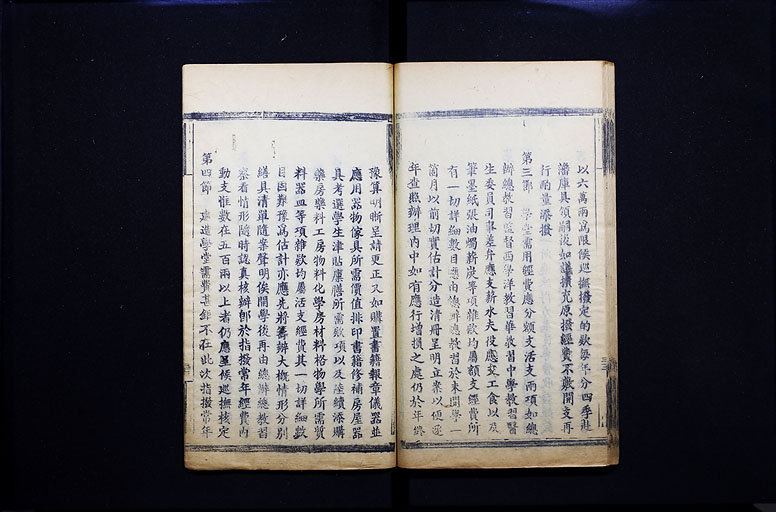 以六萬兩爲限候巡撫撥定的款每年分四季赴
藩庫具領嗣後如議擴充原撥經費不敷開支再
行酌量添撥
第三節 學堂需用經費應分額支活支兩項如總
辦總教習監督西學洋教習華教習中學教習醫
生委員司事差弁應支薪水夫役應支工食以及
筆墨紙張油燭薪炭等項雜款均屬額支經費所
有一切詳細數目應由總辦總教習於未開學一
箇月以前切實估計分造清冊呈明立案以便逐
年查照辦理內中如有應行增損之處仍於年終
豫算明晰呈請更正又如購置書籍報章儀器並
應用器物傢具所需價值排印書籍修補房屋器
具考選學生津貼廩膳所需款項以及陸續添購
藥房藥料工房物料化學房材料格物學所需質
料器皿等項雜款均屬活支經費其一切詳細數
目固難豫爲估計亦應先將籌辦大概情形分別
繕具清單隨案聲明俟開學後再由總辦總教習
察看情形隨時認真核辦卽於指撥常年經費內
動支惟數在五百兩以上者仍應呈候巡撫核定
第四節 建造學堂需費甚鉅不在此次指撥常年